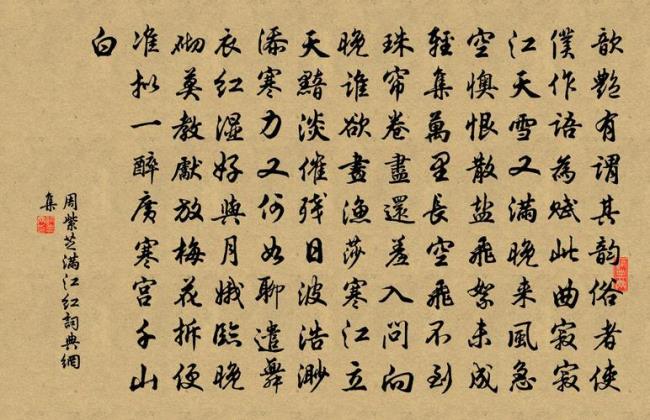 歆艷有謂其韵俗者使
僕作語為赋此曲寂寂
江天雪又滿晚来風急
空懊恨散盐飛絮未成
轻集萬里長空飛不到
珠帘卷盡還羞入問向
晚谁欲畫漁莎寒江立
天黯淡催残日波浩渺
添寒力又何如聊遣舞
衣紅湿好與月娥臨晚
砌莫教獻放梅花拆便
准拟一醉廣寒宫千山
白
周紫芝滿江红詞典網
集